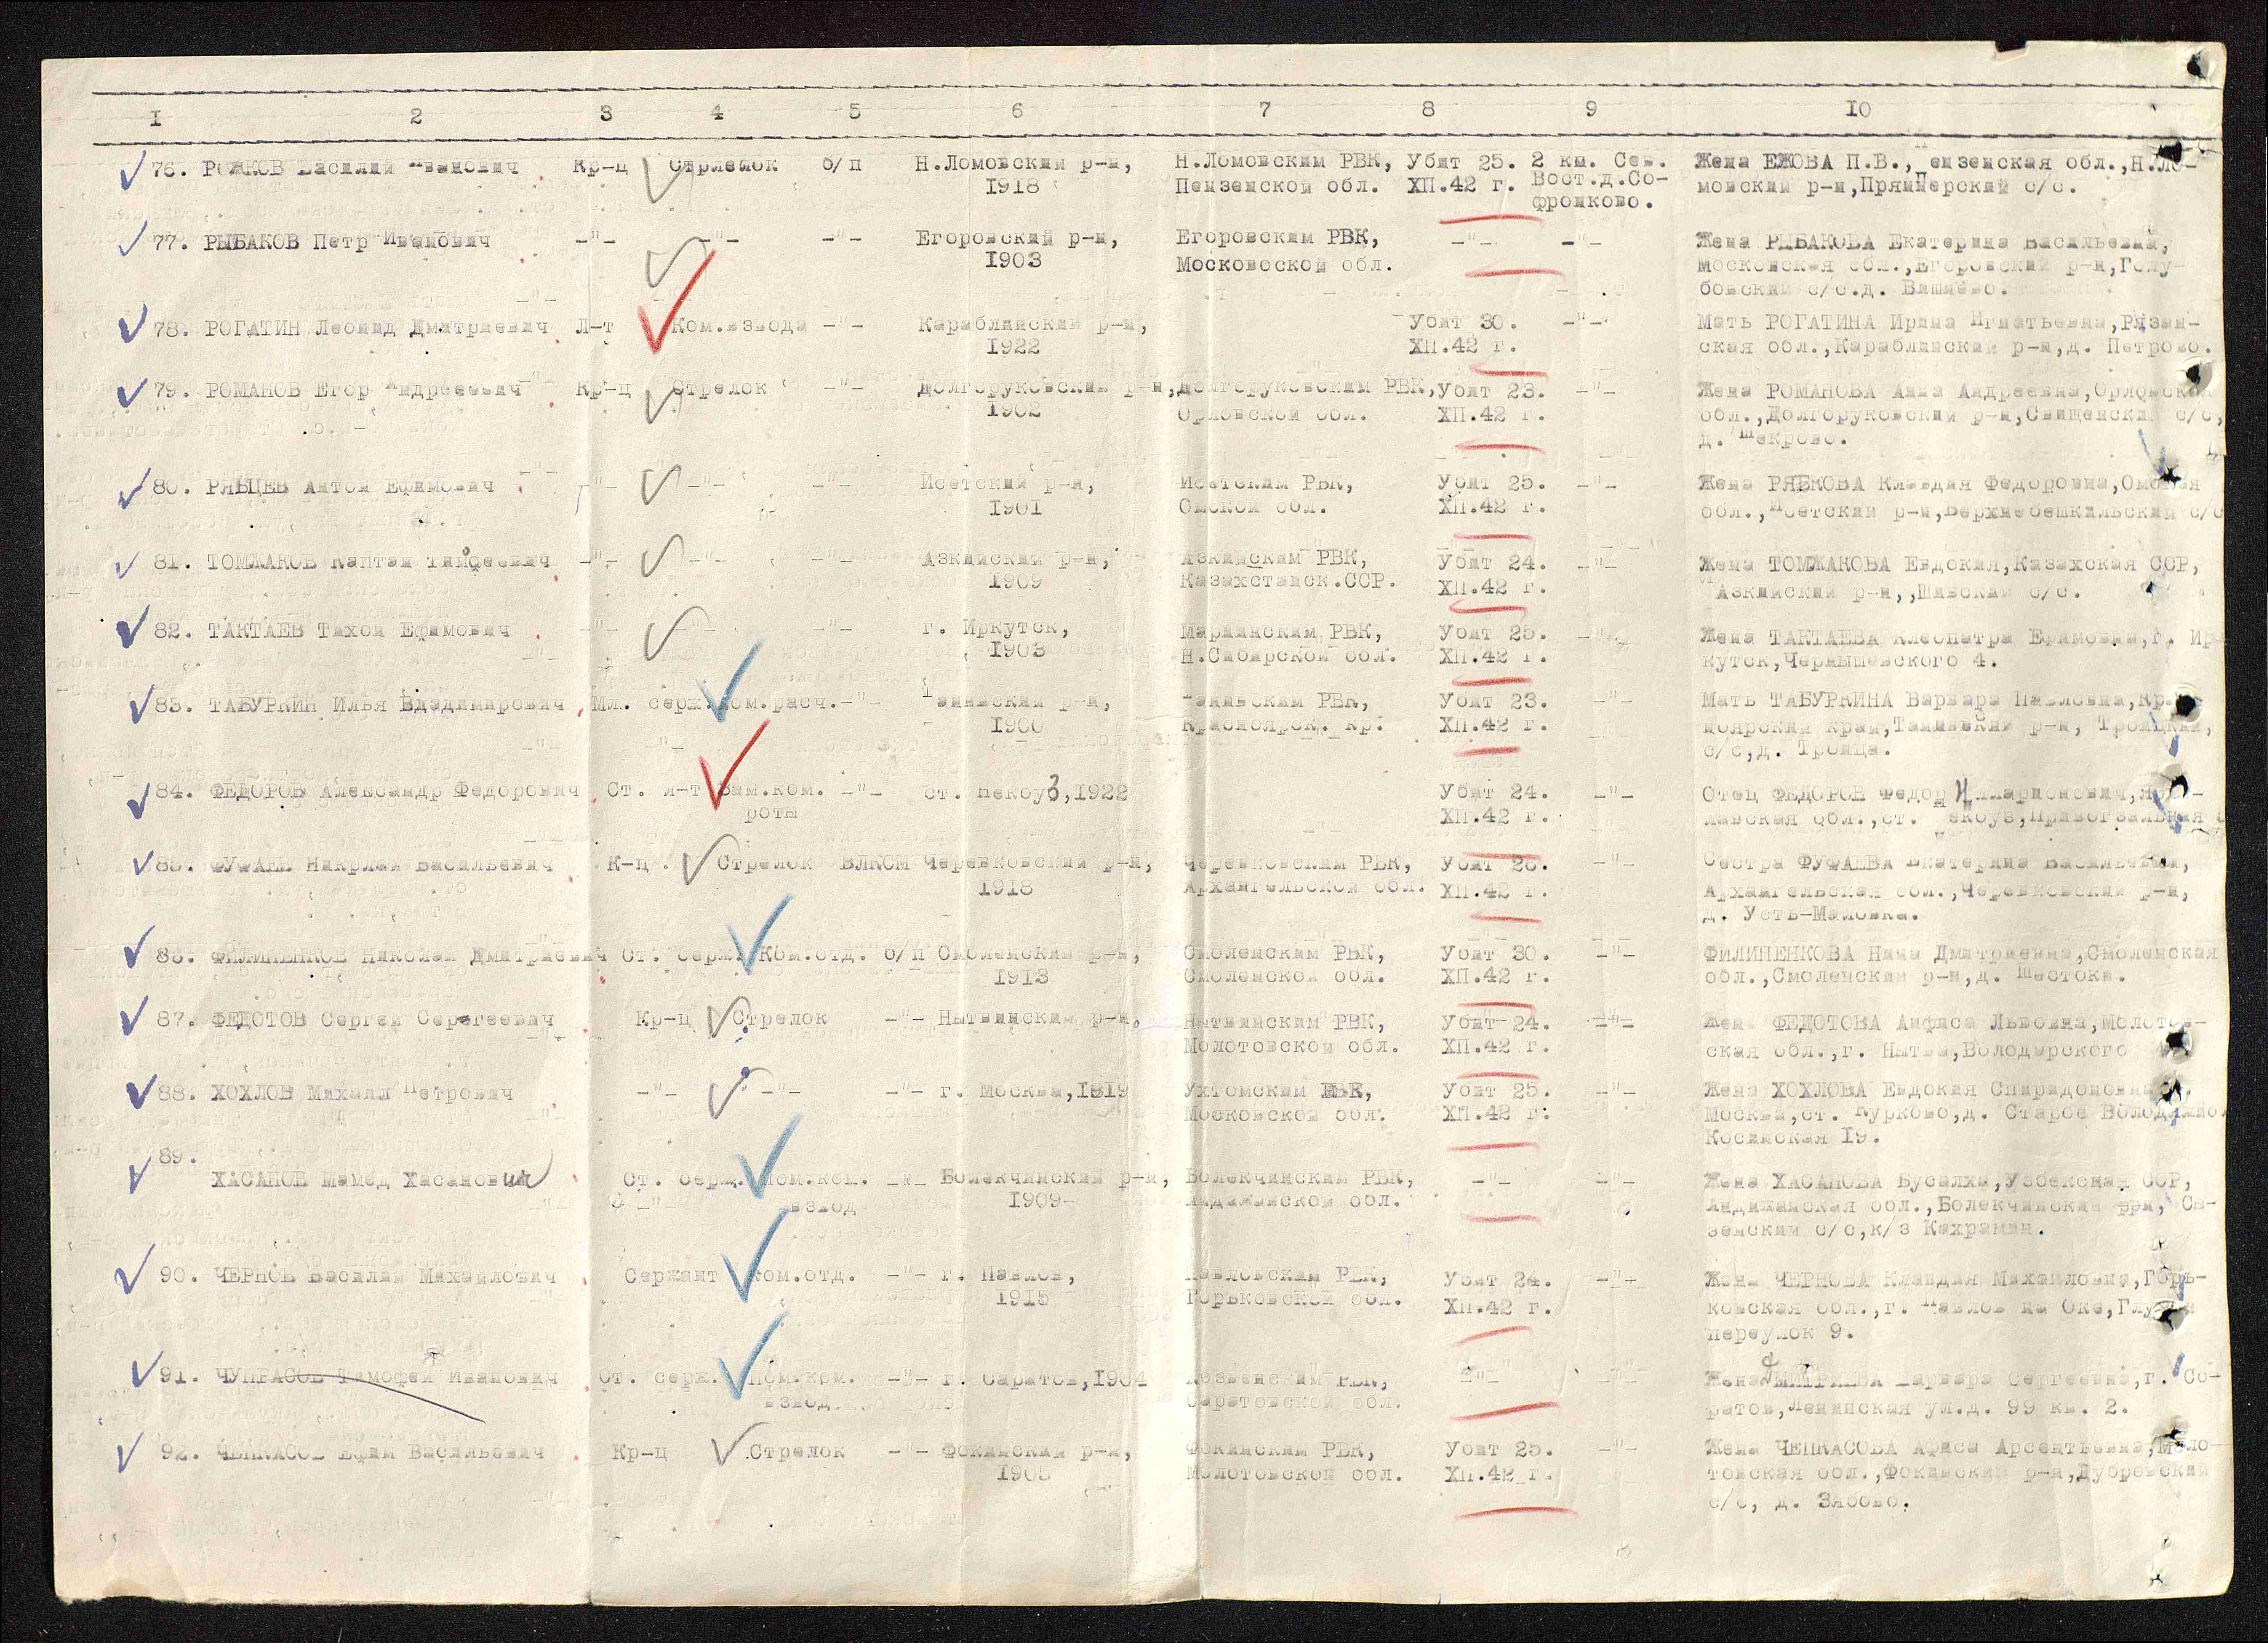 1 2 3 4 5 6 7 8 9 10
76. РОЖКОВ Василий Иванович Кр-ц Стрелок б/п Н.Ломовский р-н, Н.Ломовским РВК, Убит 25. 2 км. Сев. Жена ЕЖОВА П.В., Пензенская обл., Н.Ло-
1918 Пензенской обл. ХП.42 г. Вост.д.Со- мовский р-н, с/с.
фронково.
77. РЫБАКОВ Петр Иванович -"- -"- -"- Егоровский р-н, Егоровским РВК, -"- -"- Жена РЫБАКОВА Екатерина Васильевна,
1903 Московоской обл. Московская обл.,Егоровский р-н,Голу-
бовский с/с.д.
78. РОГАТИН Леонид Дмитриевич Л-т Ком.взвода -"- Кораблинский р-н, Убит 30. -"- Мать РОГАТИНА Ирина Игнатьевна,Рязан-
1922 ХП.42 г. ская обл.,Караблинский р-н,д. Петрово.
79. РОМАНОВ Егор Андреевич Кр-ц Стрелок -"- Долгоруковский р-н, Долгоруковским РВК, Убит 23. -"- Жена РОМАНОВА Анна Андреевна,Орловская
1902 Орловской обл. ХП.42 г. обл.,Долгоруковский р-н, с/с,
д. Шекрово.
80. РЯБЦЕВ Антон Ефимович -"- -"- -"- Исетский р-н, Исетским РВК, Убит 25. -"- Жена РЯБКОВА Клавдия Федоровна,Омская
1901 Омской обл. ХП.42 г. обл.,Исетский р-н,Верхнебешкильский с/с
81. ТОМЖАКОВ Каптай Тимофеевич -"- -"- -"- Азкийский р-н, Азкийским РВК, Убит 24. -"- Жена ТОМЖАКОВА Евдокия,Казахская ССР,
1909 Казахстанск.ССР. ХП.42 г. Азкийский р-н,, с/с.
82. ТАКТАЕВ Тихон Ефимович -"- -"- -"- г. Иркутск, Мариинским РВК, Убит 25. -"- Жена ТАКТАЕВА Клеопатра Ефимовна,г. Ир-
1903 Н.Сибирской обл. ХП.42 г. кутск,Чернышевского 4.
83. ТАБУРКИН Илья Владимирович Мл. серж. Ком.расч. -"- р-н, РВК, Убит 23. -"- Мать ТАБУРКИНА Варвара Павловна,Крас-
1900 Красноярск. кр. ХП.42 г. ноярский край, р-н, Троицкий,
с/с,д. Троица.
84. ФЕДОРОВ Александр Федорович Ст. л-т Зам.ком. -"- ст. Некоуз,1922 Убит 24. -"- Отец ФЕДОРОВ Федор Илларионович,Яро-
роты ХП.42 г. лавская обл.,ст. Некоуз,Привогзальная
85. ФУФАЕВ Николай Васильевич К-ц Стрелок ВЛКСМ Черевковский р-н, Черевковским РВК, Убит 26. -"- Сестра ФУФАЕВА Екатерина Васильевна,
1918 Архангельской обл. ХП.42 г. Архангельская обл.,Черевковский р-н,
д. Усть-Маловка.
86. ФИЛИПЕНКОВ Николай Дмитриевич Ст. серж. Ком.отд. б/п Смоленский р-н, Смоленским РВК, Убит 30. -"- ФИЛИПЕНКОВА Нина Дмитриевна,Смоленская
1913 Смоленской обл. ХП.42 г. обл.,Смоленский р-н,д. Шестока.
87. ФЕДОТОВ Сергей Сергеевич Кр-ц Стрелок -"- Нытвинский р-н, Нытвинским РВК, Убит 24. -"- Жена ФЕДОТОВА Анфиса Львовна,Молотов-
Молотовской обл. ХП.42 г. ская обл.,г. Нытва,Володарского
88. ХОХЛОВ Михаил Петрович -"- -"- -"- г. Москва,1919 Ухтомским РВК, Убит 25. -"- Жена ХОХЛОВА Евдокия Спиридоновна,
Московской обл. ХП.42 г. Москва,ст. Курково,д. Старое
Косинская 19.
89.
ХАСАНОВ Мамед Хасанович Ст. серж. Пом.ком. -"- Болекчинский р-н, Болекчинским РВК, -"- -"- Жена ХАСАНОВА Бусалха,Узбекская ССР,
взвод 1909 Андижанской обл. Андижанская обл.,Болекчинский р-н, Сы-
земский с/с,к/з Кахрамин.
90. ЧЕРНОВ Василий Михайлович Сержант Ком.отд. -"- г. Павлов, Павловским РВК, Убит 24. -"- Жена ЧЕРНОВА Клавдия Михайловна,Горь-
1915 Горьковской обл. ХП.42 г. ковская обл.,г. Павлов на Оке,
переулок 9.
91. ЧУПРАСОВ Тимофей Иванович Ст. серж. Пом.ком. -"- г. Саратов,1904 РВК, -"- -"- Жена Варвара Сергеевна,г. Са-
взвод Саратовской обл. ратов,Ленинская ул.д. 99 кв. 2.
92. ЧЕПКАСОВ Ефим Васильевич Кр-ц Стрелок -"- Фокинский р-н, Фокинским РВК, Убит 25. -"- Жена ЧЕПКАСОВА Афиса Арсентьевна,Моло-
1905 Молотовской обл. ХП.42 г. товская обл.,Фокинский р-н,Дубровский
с/с, д. Зябово.